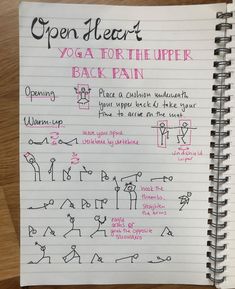 Open Heart
YOGA FOR THE UPPER
BACK PAIN
Opening
Place a cushion underneath
your upper back & take your
time to arrive on the mat
Warm-up
move your spine
vertebrae by vertebrae
windshield
wiper
hook the
thumbs,
straighten
the arms
or
grab the opposite